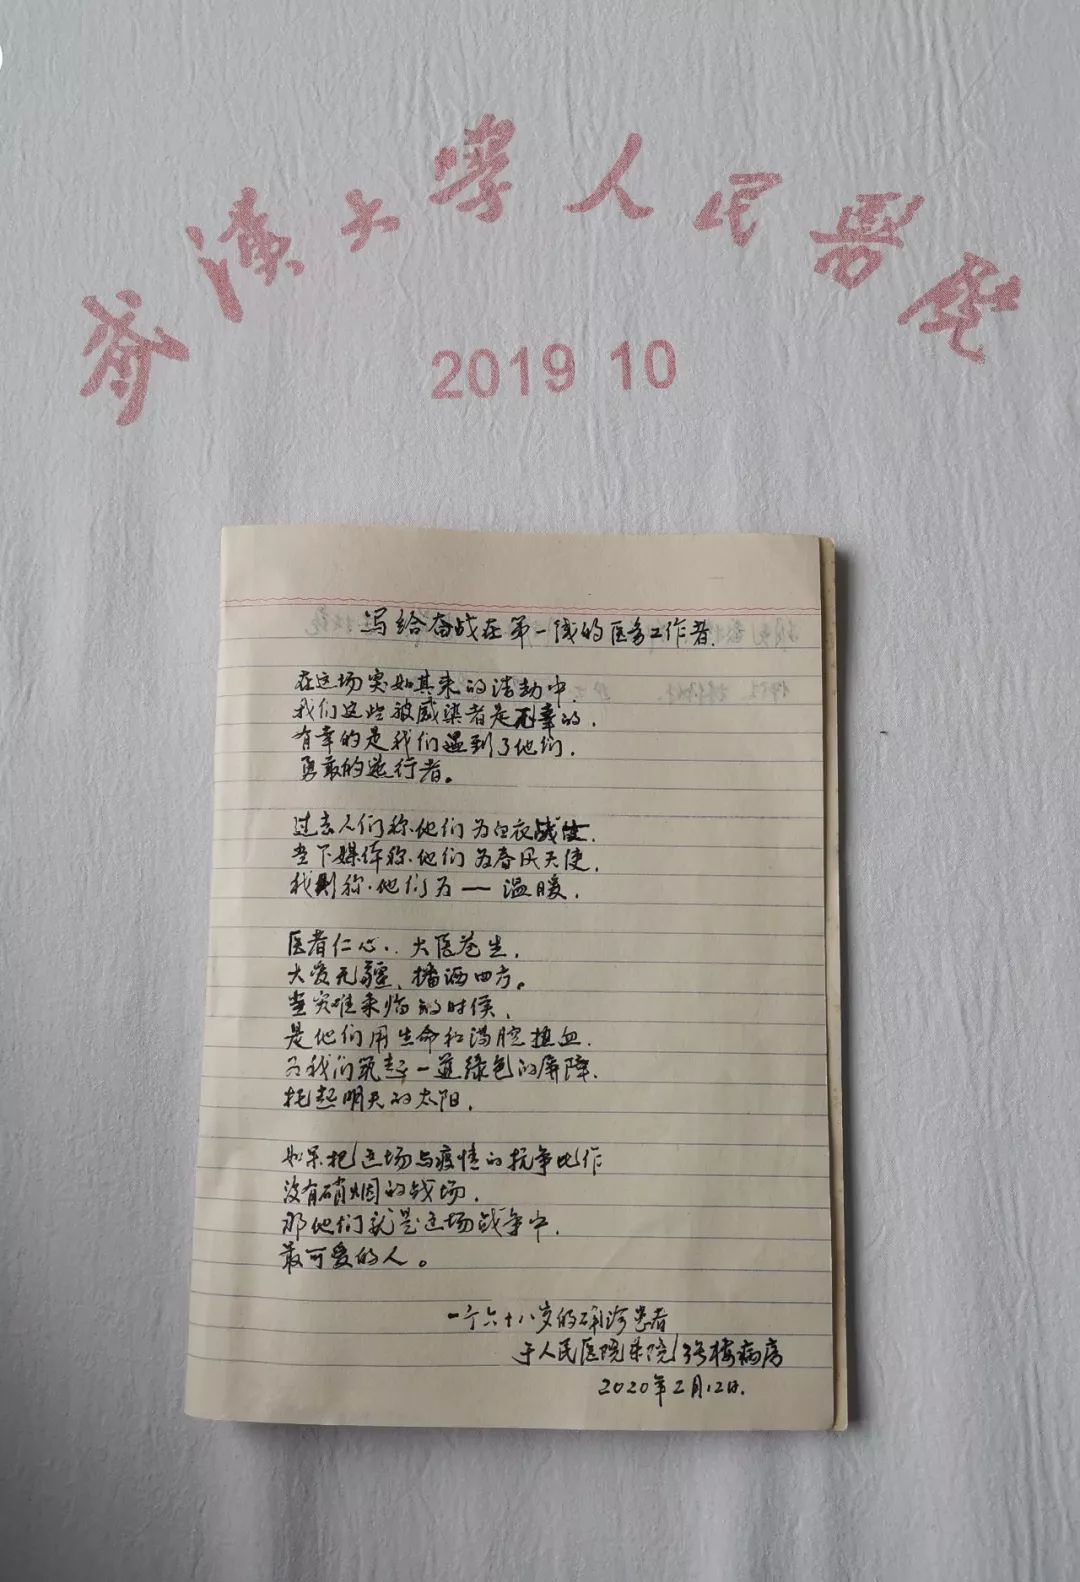 武漢大學人民醫院
2019 10
写给奋战在第一线的医务工作者.
在这场突如其来的浩劫中.
我们这些被感染者是不幸的.
有幸的是我们遇到了他们.
勇敢的逆行者。
过去人们称他们为白衣战士.
当下媒体称他们为春风天使.
我则称他们为——温暖.
医者仁心.. 大医苍生.
大爱无疆、播洒四方。
当灾难来临的时候.
是他们用生命和满腔热血.
为我们筑起一道绿色的屏障.
托起明天的太阳.
如果把这场与疫情的抗争比作
没有硝烟的战场.
那他们就是这场战争中.
最可爱的人。
一个六十八岁的确诊患者
于人民医院东院 号楼病房
2020年2月12日.